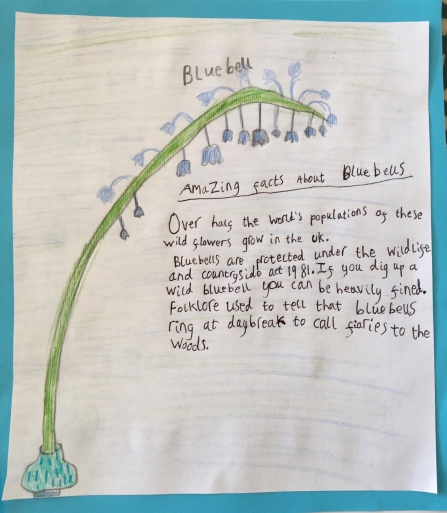 Bluebell
Amazing facts About Bluebells
Over half the world's populations of these
wild flowers grow in the UK.
Bluebells are protected under the Wildlife
and countryside act 1981. If you dig up a
wild bluebell you can be heavily fined.
Folklore used to tell that bluebells
ring at daybreak to call fiaries to the
woods.